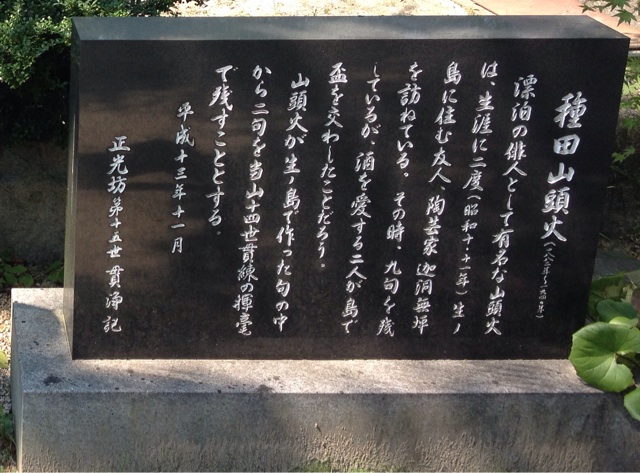 種田山頭火(一八八二年〜一九四〇年)
漂泊の俳人として有名な山頭火
は、生涯に二度(昭和十・十一年)生ノ
島に住む友人、陶芸家 迦洞無坪
を訪ねている。その時、九句を残
しているが、酒を愛する二人が島で
盃を交わしたことだろう。
山頭火が生ノ島で作った句の中
から二句を当山十四世貫練の揮毫
で残すこととする。
平成十三年十一月
正光坊第十五世 貫浄記